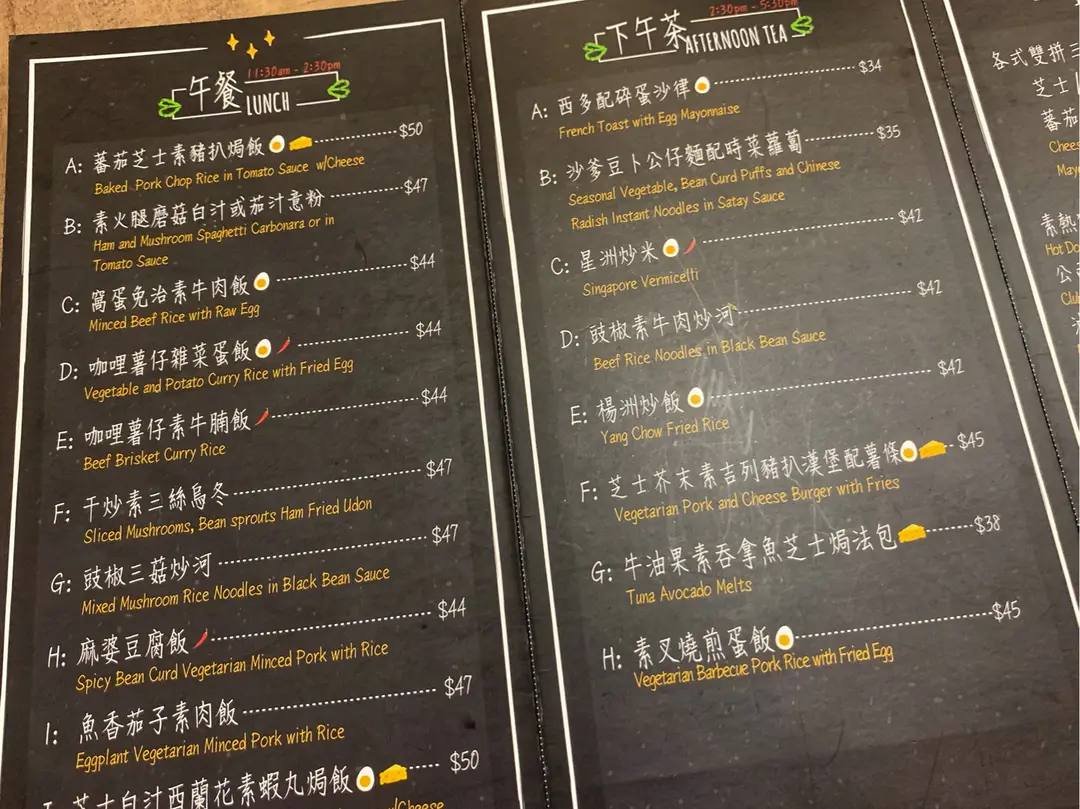 午餐
11:30am - 2:30pm
LUNCH
A: 蕃茄芝士素豬扒焗飯 $50
Baked Pork Chop Rice in Tomato Sauce w/Cheese
B: 素火腿蘑菇白汁或茄汁意粉 $47
Ham and Mushroom Spaghetti Carbonara or in
Tomato Sauce
C: 窩蛋免治素牛肉飯 $44
Minced Beef Rice with Raw Egg
D: 咖哩薯仔雜菜蛋飯 $44
Vegetable and Potato Curry Rice with Fried Egg
E: 咖哩薯仔素牛腩飯 $44
Beef Brisket Curry Rice
F: 干炒素三絲烏冬 $47
Sliced Mushrooms, Bean sprouts Ham Fried Udon
G: 豉椒三菇炒河 $47
Mixed Mushroom Rice Noodles in Black Bean Sauce
H: 麻婆豆腐飯 $44
Spicy Bean Curd Vegetarian Minced Pork with Rice
I: 魚香茄子素肉飯 $47
Eggplant Vegetarian Minced Pork with Rice
芝士白汁西蘭花素蝦丸焗飯 $50
w/Cheese
下午茶
2:30pm - 5:30pm
AFTERNOON TEA
A: 西多配碎蛋沙律 $34
French Toast with Egg Mayonnaise
B: 沙爹豆卜公仔麵配時菜蘿蔔 $35
Seasonal Vegetable, Bean Curd Puffs and Chinese
Radish Instant Noodles in Satay Sauce
C: 星洲炒米 $42
Singapore Vermicelli
D: 豉椒素牛肉炒河 $42
Beef Rice Noodles in Black Bean Sauce
E: 楊洲炒飯 $42
Yang Chow Fried Rice
F: 芝士芥末素吉列豬扒漢堡配薯條 $45
Vegetarian Pork and Cheese Burger with Fries
G: 牛油果素吞拿魚芝士焗法包 $38
Tuna Avocado Melts
H: 素叉燒煎蛋飯 $45
Vegetarian Barbecue Pork Rice with Fried Egg
各式雙拼三
芝士
蕃茄
素熱
Hot Do
公
Clu